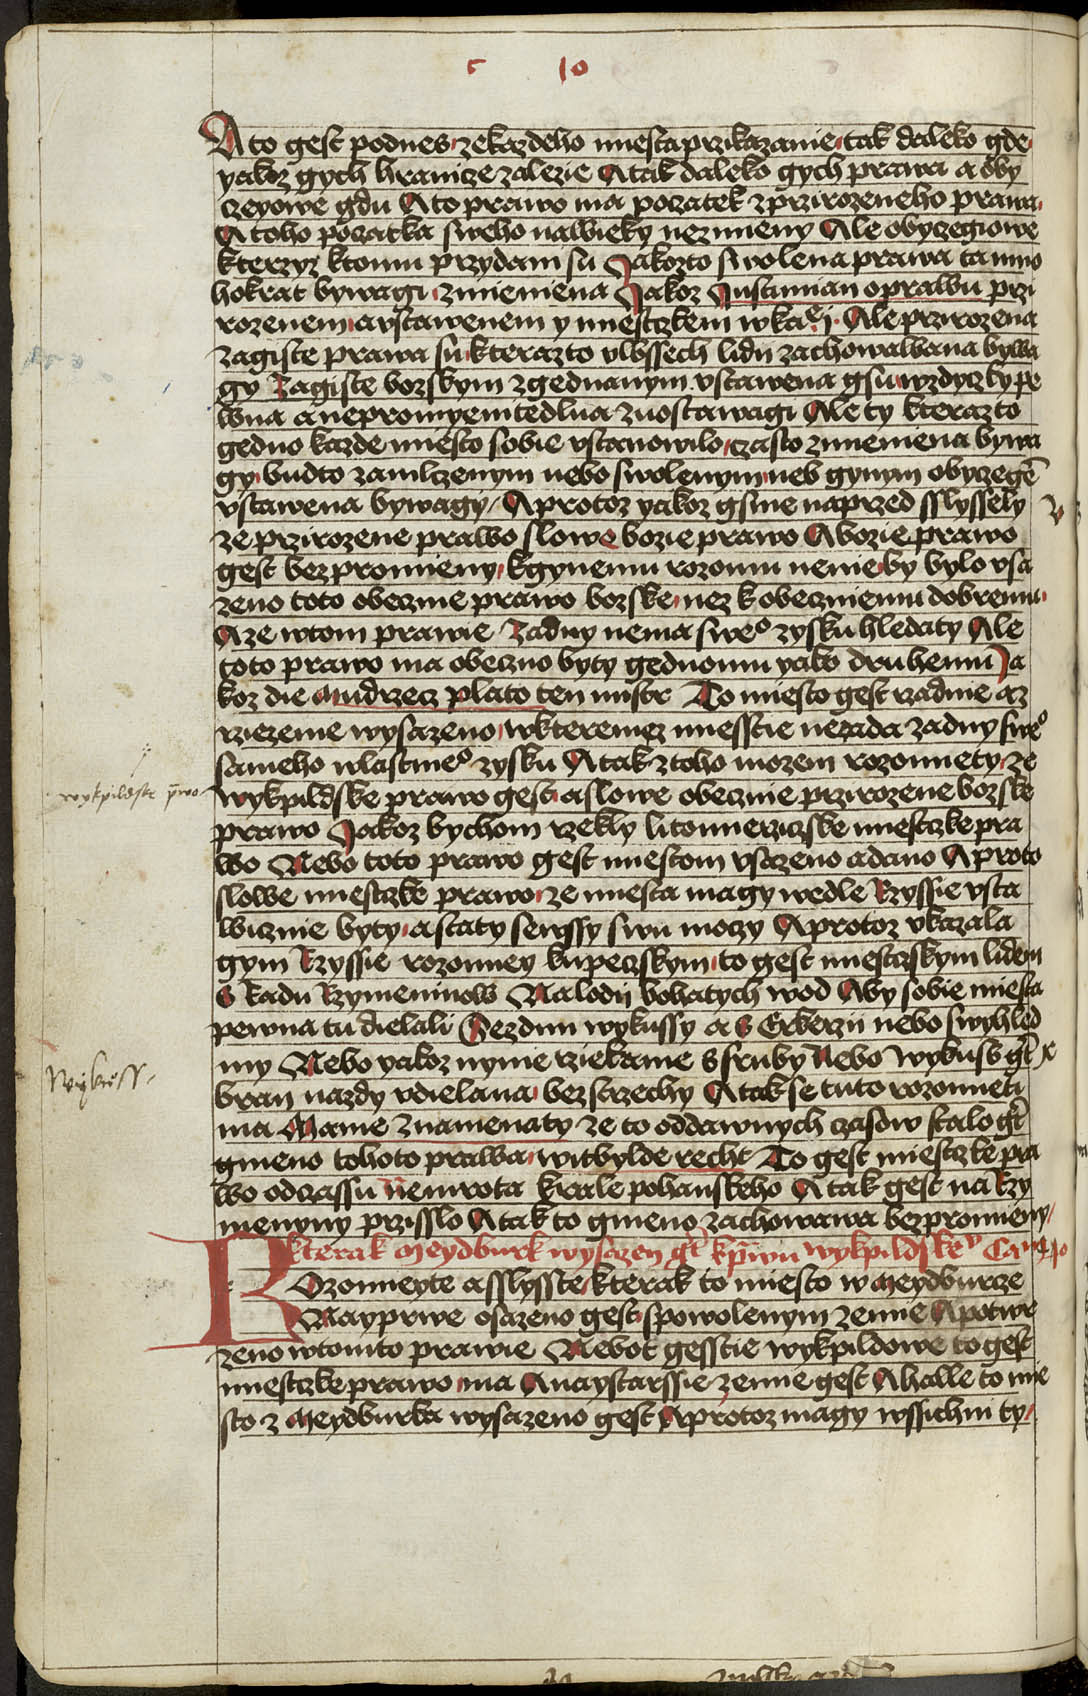 c 10
A to gest podnes zekazdeho miesta przikazanie tak daleko gde
yakoz gych hranicze zalezie A tak daleko gych prawa a oby
czeyowe gdu A to prawo ma poczatek z przirozeneho prawa
A toho poczatka sweho nawieky nezmieny Ale obyczegiowe
kterzyz ktomu przydani su Jakozto swolena prawa ta mno
hokrat bywagi zmieniena Jakoz Justinian oprawu przi
rozenem a vstawenem y miestskem wka Ale przirozena
zagiste prawa su kterazto v wssech lidu zachowawana bywa
gy Zagiste bozskym zgednanym vstawena gsu wzdyczky pe
wna a nepromyenitedlna zuostawagi Ale ty kterazto
gedno kazde miesto sobie vstanowilo czasto zmieniena bywa
gy budto zamlczenym nebo swolenym neb gynym obyczegē
vstawena bywagy A protoz yakoz gsme naprzed sslyssely
ze przirozene prawo slowe bozie prawo A bozie prawo
gest bez promieny k gynemu rozomu nenie by bylo vsa
zeno toto obeczne prawo bozske nez k obeczniemu dobremu
A ze wtom prawie Zadny nema sweº zysku hledaty Ale
toto prawo ma obeczno byty gednomu yako druhemu Ja
koz die mudrzecz plato ten mistr To miesto gest rzadnie a rz
rziezenie wysazeno wkteremez miesstie nezada zadny sweº
sameho wlastnieº zysku A tak z toho mozem rozomiety ze
wykpildske prawo gest a slowe obecznie przirozene bozske
wykpildske pwo
prawo Jakoz bychom rzekly litomierziczske miestske pra
wo Nebo toto prawo gest miestom vsazeno a dano A proto
slowe miestske prawo ze miesta magy wedle Rzyssie vsta
wicznie byty a staty sewssy swu moczy A protoz vkazala
gym Rzyssie rozomiey kupeczskym to gest miestskym lidem
S Radu Rzymeninow Na lodij bohatych wod Aby sobie miesta
pewna tu dielali S ezdmi wykussy a S Erkerzij nebo s wyhled
my Nebo yakoz nynie rziekame s sruby Nebo wykus gt
Wykuss
bran nazdy vdielana bez strzechy A tak se tuto rozomieti
ma Mame znamenaty ze to oddawnych czasow stalo gt
gmeno tohoto prawa witbylde recht To gest miestske pra
wo od czassu Nemrota krale pohanskeho A tak gest na Rzy
menyny przisslo A tak to gmeno zachowawa bez promieny
Kterak meydburk wysazen gt kpwu wykpildske
Rozomieyte a sslysste kterak to miesto w meydburcze
Nayprwe osazeno gest s powolenym zemie A potwr
zeno wtomto prawie Nebot gesstie wykpildowe to gest
miestske prawo ma A naystarssie zemie gest A halle to mie
sto z meydburka wysazeno gest A protoz magy wssichni ty